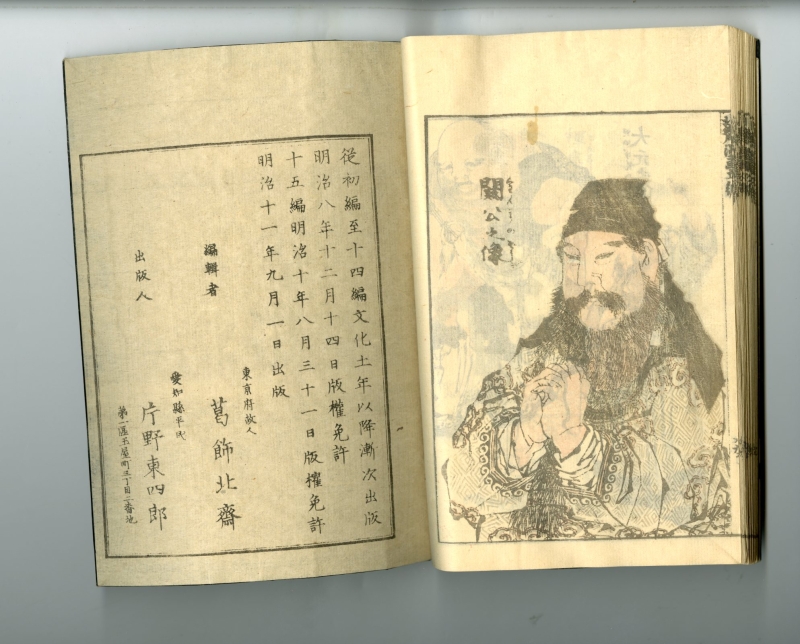 從初編至十四編文化十年以降漸次出版
明治八年十二月十四日版權免許
十五編明治十年八月三十一日版權免許
明治十一年九月一日出版
編輯者
東京府故人
葛飾北齋
出版人
愛知縣平民
片野東四郎
第一區玉屋町三丁目二番地
關公之像